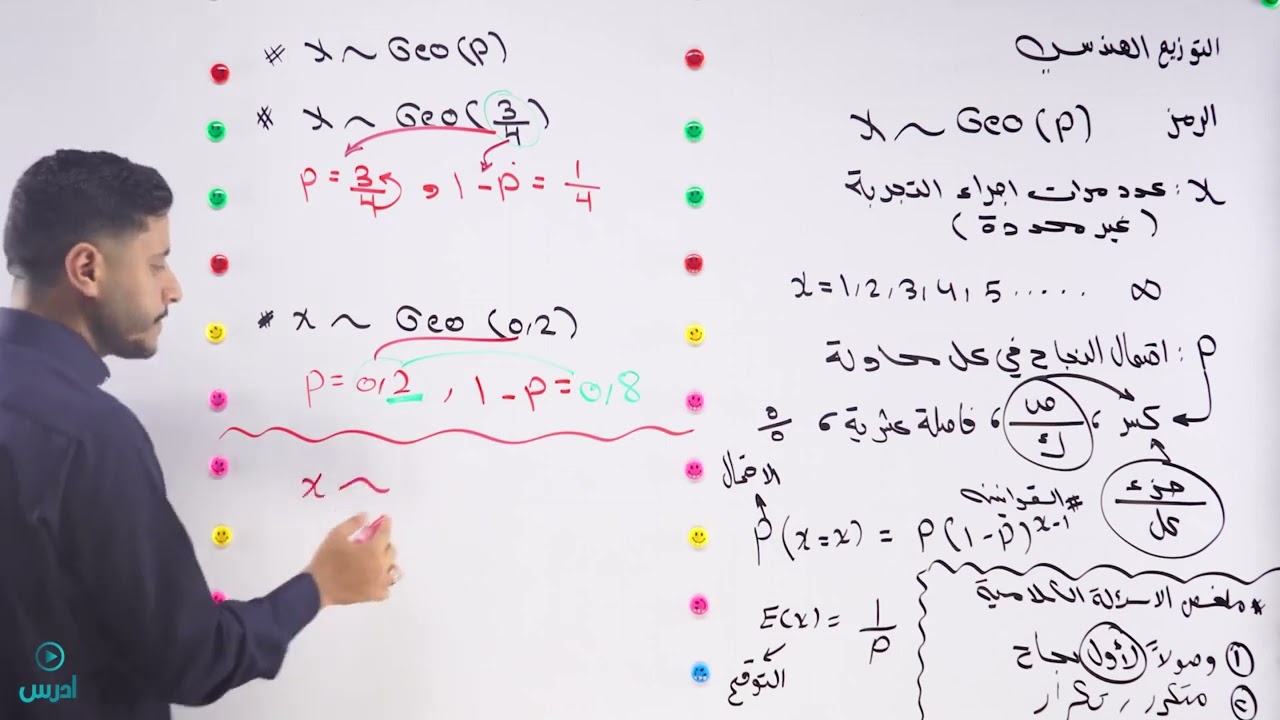 التوزيع الهندسي
الرمز x ~ Geo (p)
x : عدد مرات اجراء التجربة
(غير محددة)
x = 1, 2, 3, 4, 5 ...... ∞
p : احتمال النجاح في كل محاولة
كسر ، ص/ك ، فاصلة عشرية ، %
جزء/كل
# القوانين
الاحتمال
P (x = x) = p (1 - p)^(x-1)
E(x) = 1/p
التوقع
* ملخص الاسئلة الكلامية
① وصولاً لأول نجاح
② متكرر، تكرار
# x ~ Geo (p)
# x ~ Geo (3/4)
p = 3/4 , 1 - p = 1/4
* x ~ Geo (0,2)
p = 0,2 , 1 - p = 0,8
x ~
ادرس